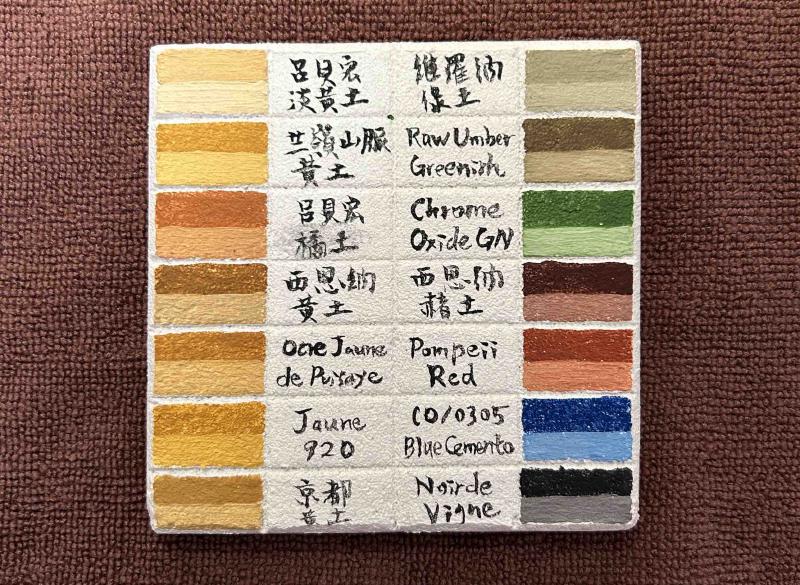 呂貝宏
淡黃土
維羅納
綠土
嶺山脈
黃土
Raw Umber
Greenish
呂貝宏
橘土
Chrome
Oxide GN
西恩納
黃土
西恩納
赭土
Ocre Jaune
de Puisaye
Pompeii
Red
Jaune
920
CO/0305
Blue Cemento
京都
黃土
Noir de
Vigne